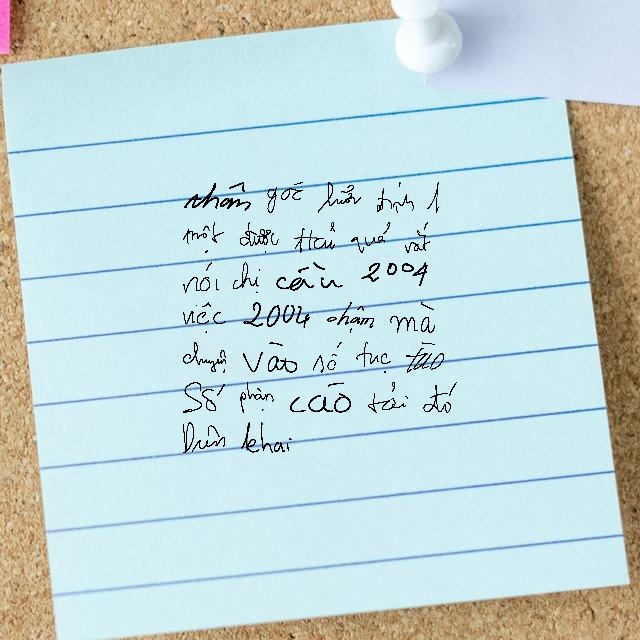 nhân gốc lưới định 1
một được Hai quá vất
nói chị cần 2004
việc 2004 chậm mà
chuyện vào số tục tạo
Số phận cao tải đó
Diễn khai